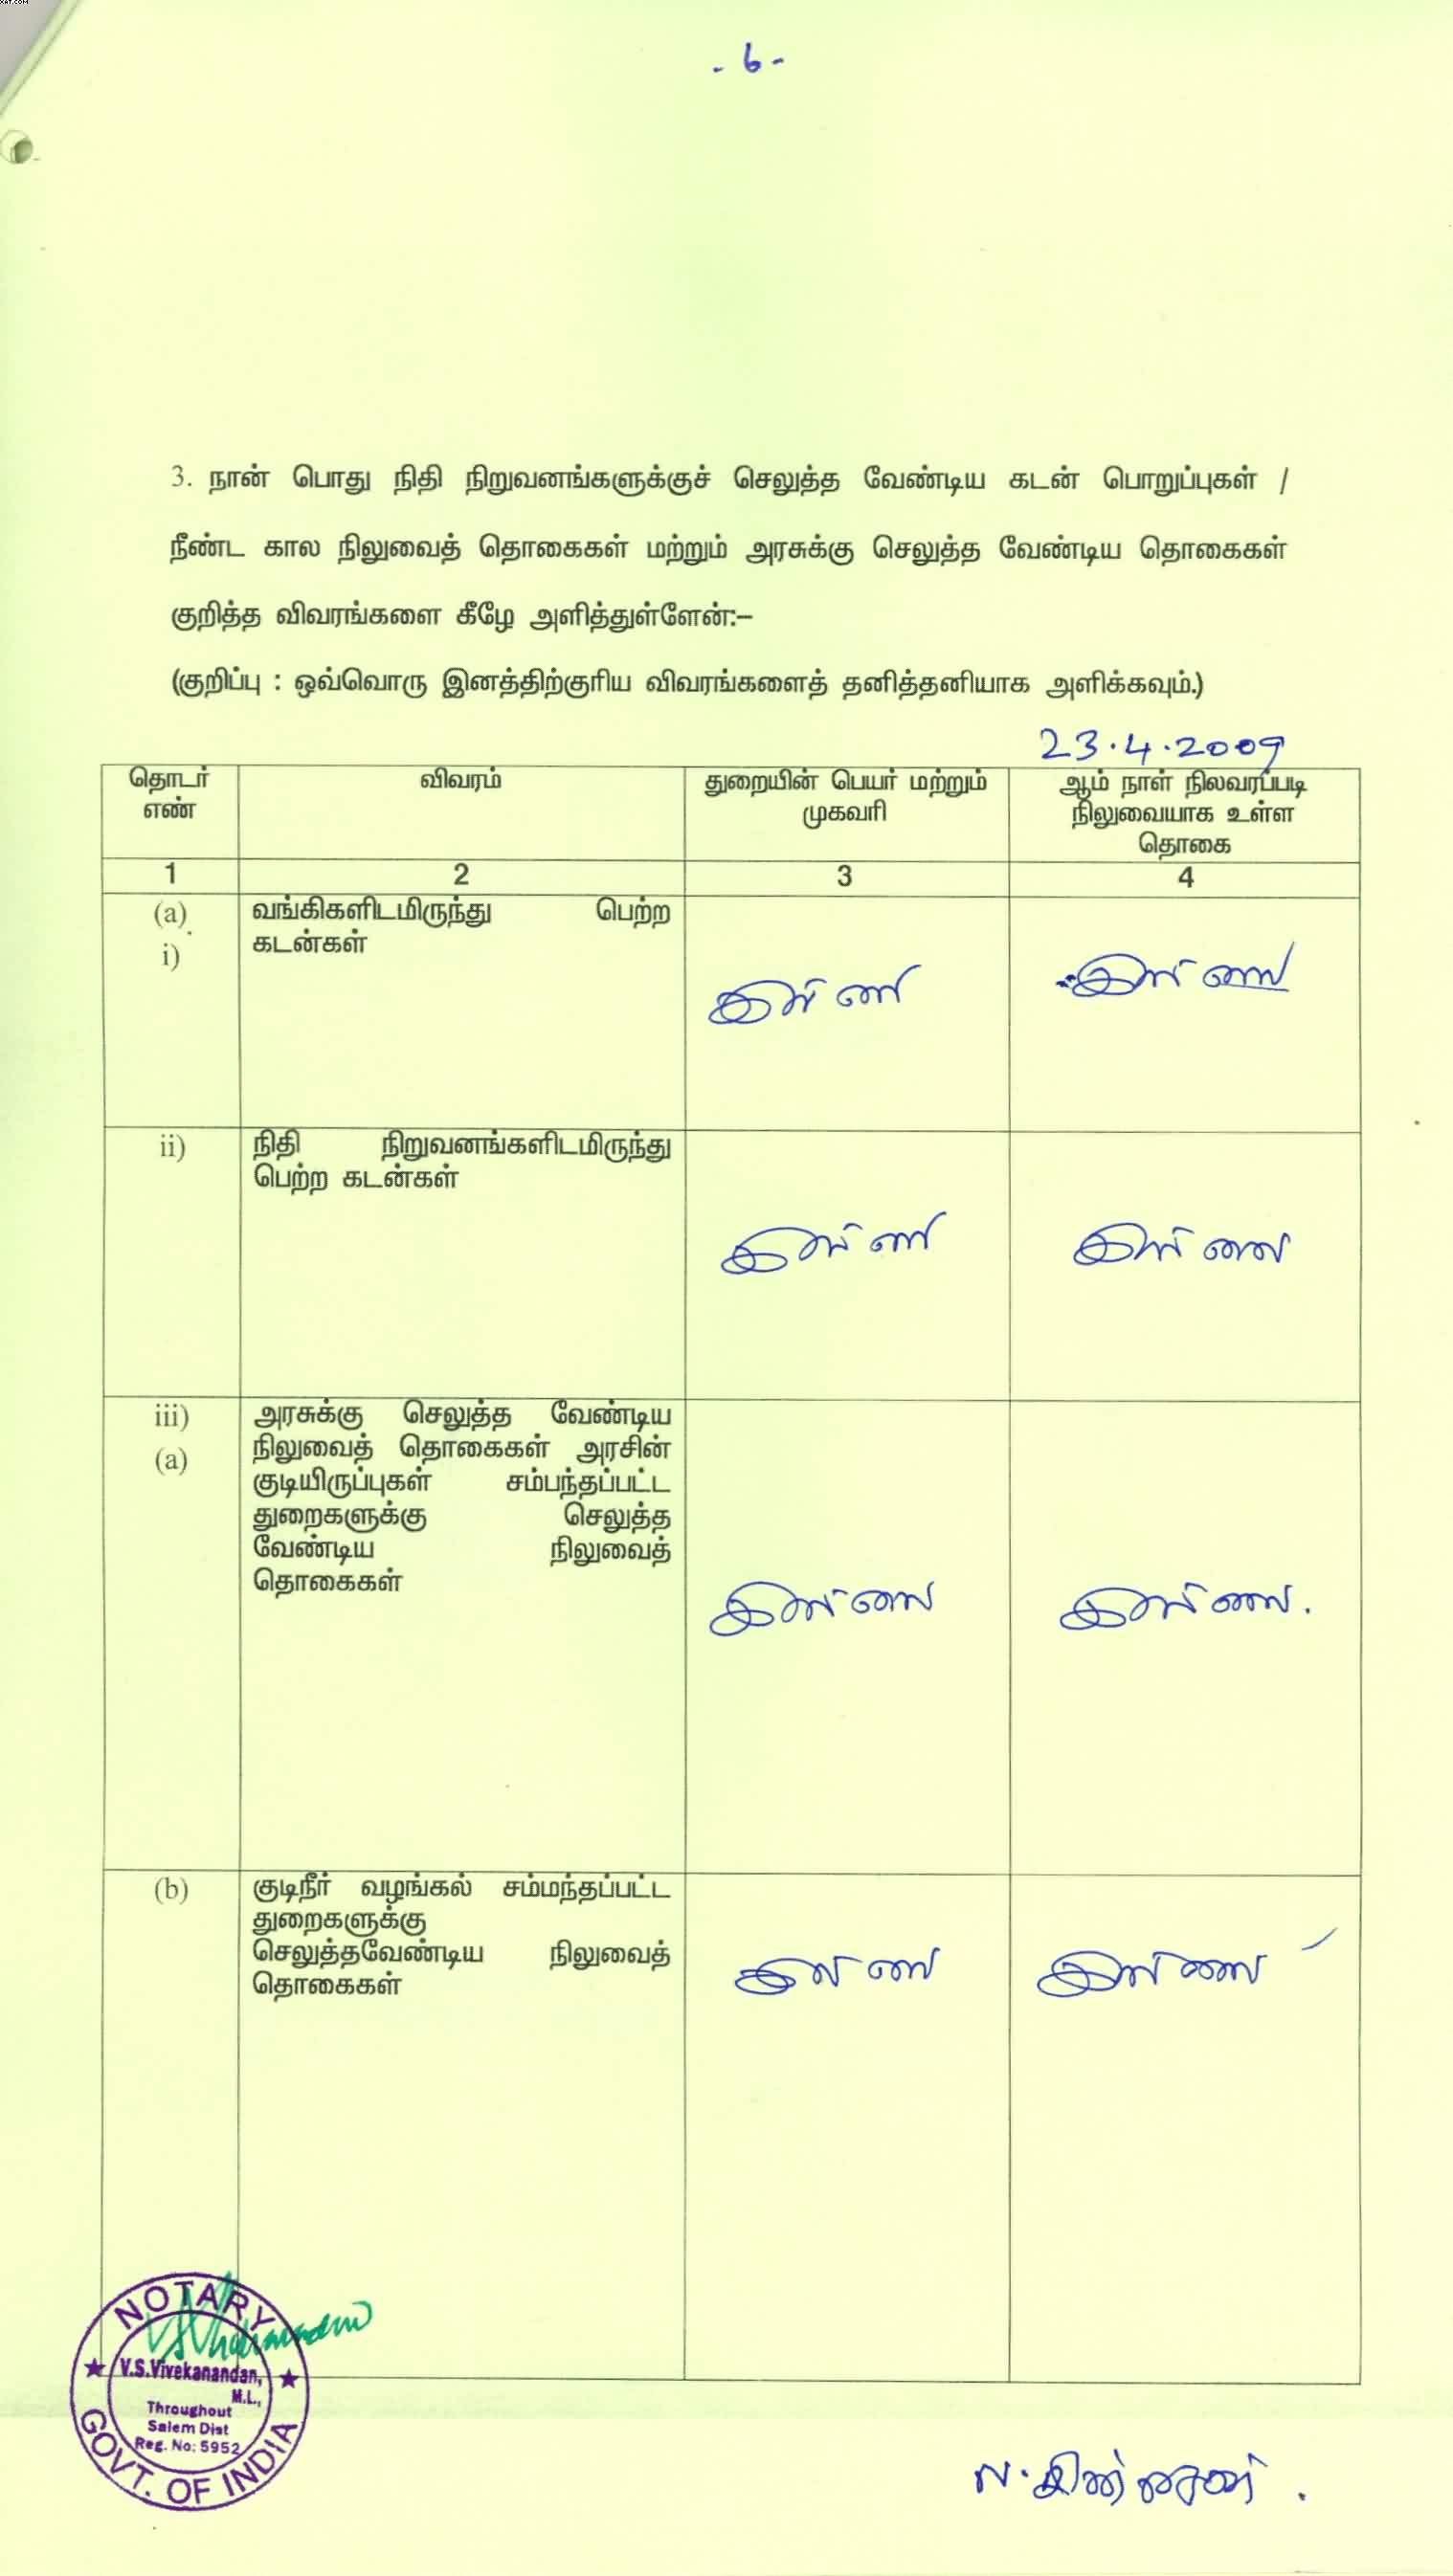 - 6 -
3. நான் பொது நிதி நிறுவனங்களுக்குச் செலுத்த வேண்டிய கடன் பொறுப்புகள் /
நீண்ட கால நிலுவைத் தொகைகள் மற்றும் அரசுக்கு செலுத்த வேண்டிய தொகைகள்
குறித்த விவரங்களை கீழே அளித்துள்ளேன்:–
(குறிப்பு : ஒவ்வொரு இனத்திற்குரிய விவரங்களைத் தனித்தனியாக அளிக்கவும்.)
23.4.2009
தொடர் எண்
விவரம்
துறையின் பெயர் மற்றும் முகவரி
ஆம் நாள் நிலவரப்படி
நிலுவையாக உள்ள
தொகை
1 2 3 4
(a) வங்கிகளிடமிருந்து பெற்ற
i) கடன்கள்
இல்லை இல்லை
ii) நிதி நிறுவனங்களிடமிருந்து
பெற்ற கடன்கள்
இல்லை இல்லை
iii) அரசுக்கு செலுத்த வேண்டிய
(a) நிலுவைத் தொகைகள் அரசின்
குடியிருப்புகள் சம்பந்தப்பட்ட
துறைகளுக்கு செலுத்த
வேண்டிய நிலுவைத்
தொகைகள்
இல்லை இல்லை.
(b) குடிநீர் வழங்கல் சம்மந்தப்பட்ட
துறைகளுக்கு
செலுத்தவேண்டிய நிலுவைத்
தொகைகள்
இல்லை இல்லை
NOTARY
V.S.Vivekanandan,
M.L.,
Throughout
Salem Dist
Reg. No: 5952
GOVT. OF INDIA